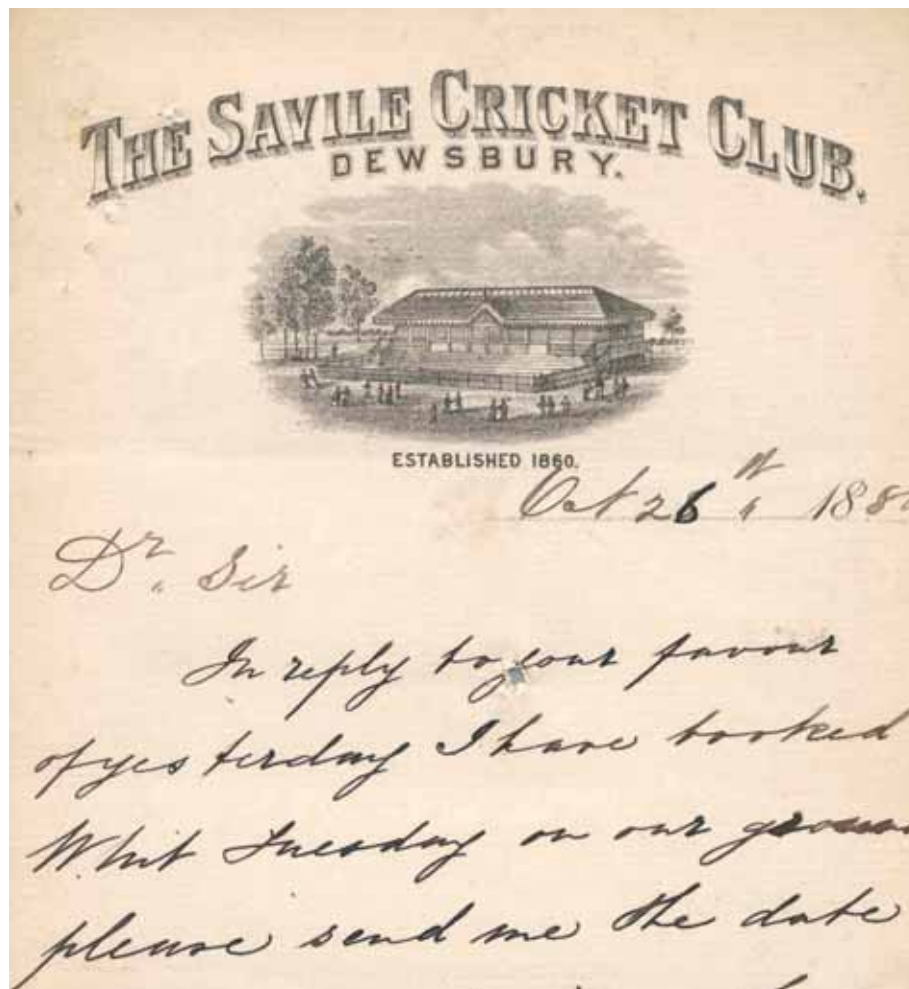 THE SAVILE CRICKET CLUB.
DEWSBURY.
ESTABLISHED 1860.
Oct 26th 188
Dr. Sir
In reply to your favour
of yesterday I have booked
Whit Tuesday on our groun
please send me the date